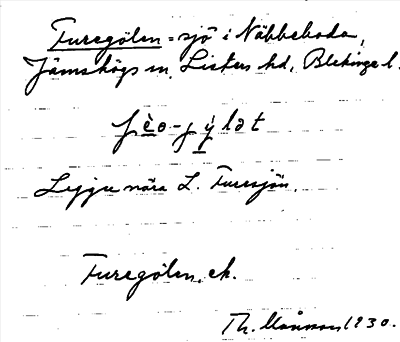 Furegölen = sjö i Näbbeboda,
Jämshögs sn, Listers hd, Blekinge l.
Ligger nära L. Furesjön.
Furegölen, ek.
Th. Månsson 1930.